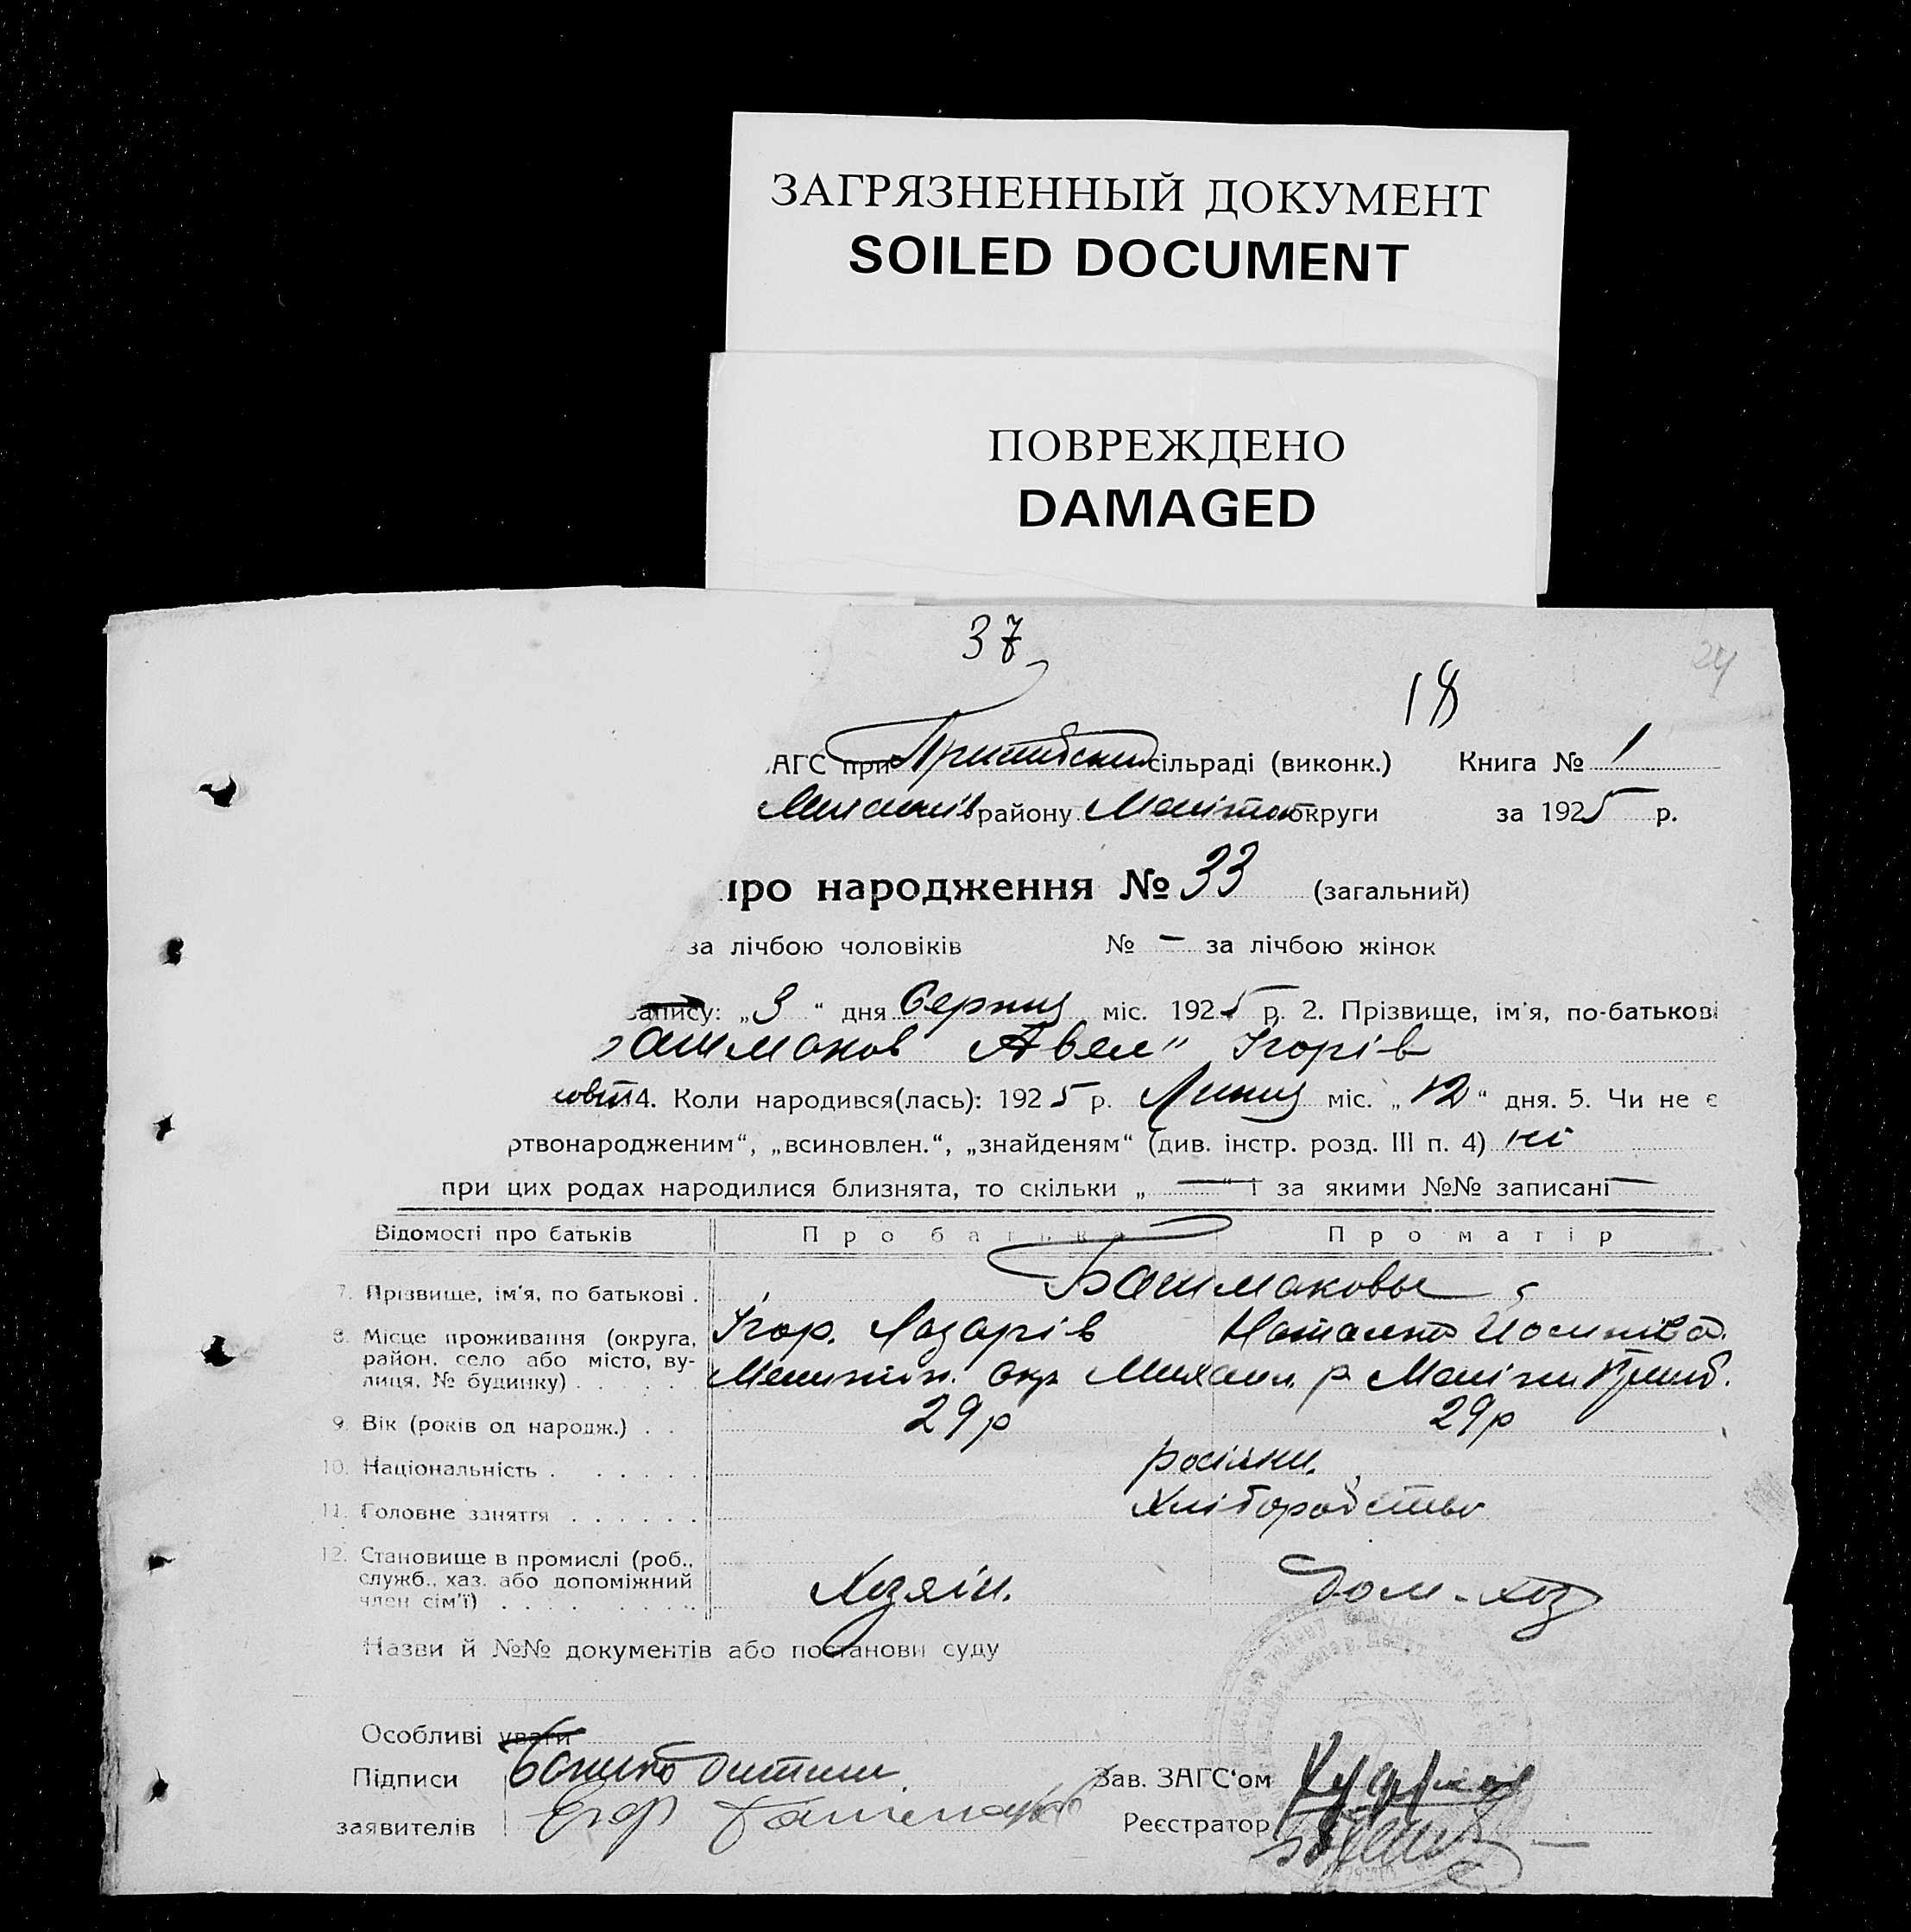 ЗАГРЯЗНЕННЫЙ ДОКУМЕНТ
SOILED DOCUMENT
ПОВРЕЖДЕНО
DAMAGED
37
18
24
АГС при сільраді (виконк.) Книга № 1
району округи за 1925 р.
про народження № 33 (загальний)
за лічбою чоловіків № – за лічбою жінок
запису: „3“ дня Серпня міс. 1925 р. 2. Прізвище, ім'я, по-батькові
ашмаков Авел Ігорів
4. Коли народився(лась): 1925 р. Липня міс. „12“ дня. 5. Чи не є
ртвонародженим“, „всиновлен.“, „знайденям“ (див. інстр. розд. III п. 4) ні
при цих родах народилися близнята, то скільки „—“ і за якими №№ записані —
Відомості про батьків Про батька Про матір
7. Прізвище, ім'я, по батькові . Башмаковы
Ігор. Лазарів Наталья
8. Місце проживання (округа,
район, село або місто, ву-
лиця, № будинку) . . . . окр. Михайл. р.
9. Вік (років од народж.) . . 29р 29р
10. Національність . . . . . . росіяни.
11. Головне заняття . . . . . . Хліборобство
12. Становище в промислі (роб.,
служб., хаз. або допоміжний
член сім'ї) . . . . . . Хозяін. Дом-хоз
Назви й №№ документів або постанови суду
Особливі уваги
Підписи Батько дитини Зав. ЗАГС'ом
заявителів Егор Башмаков Реєстратор